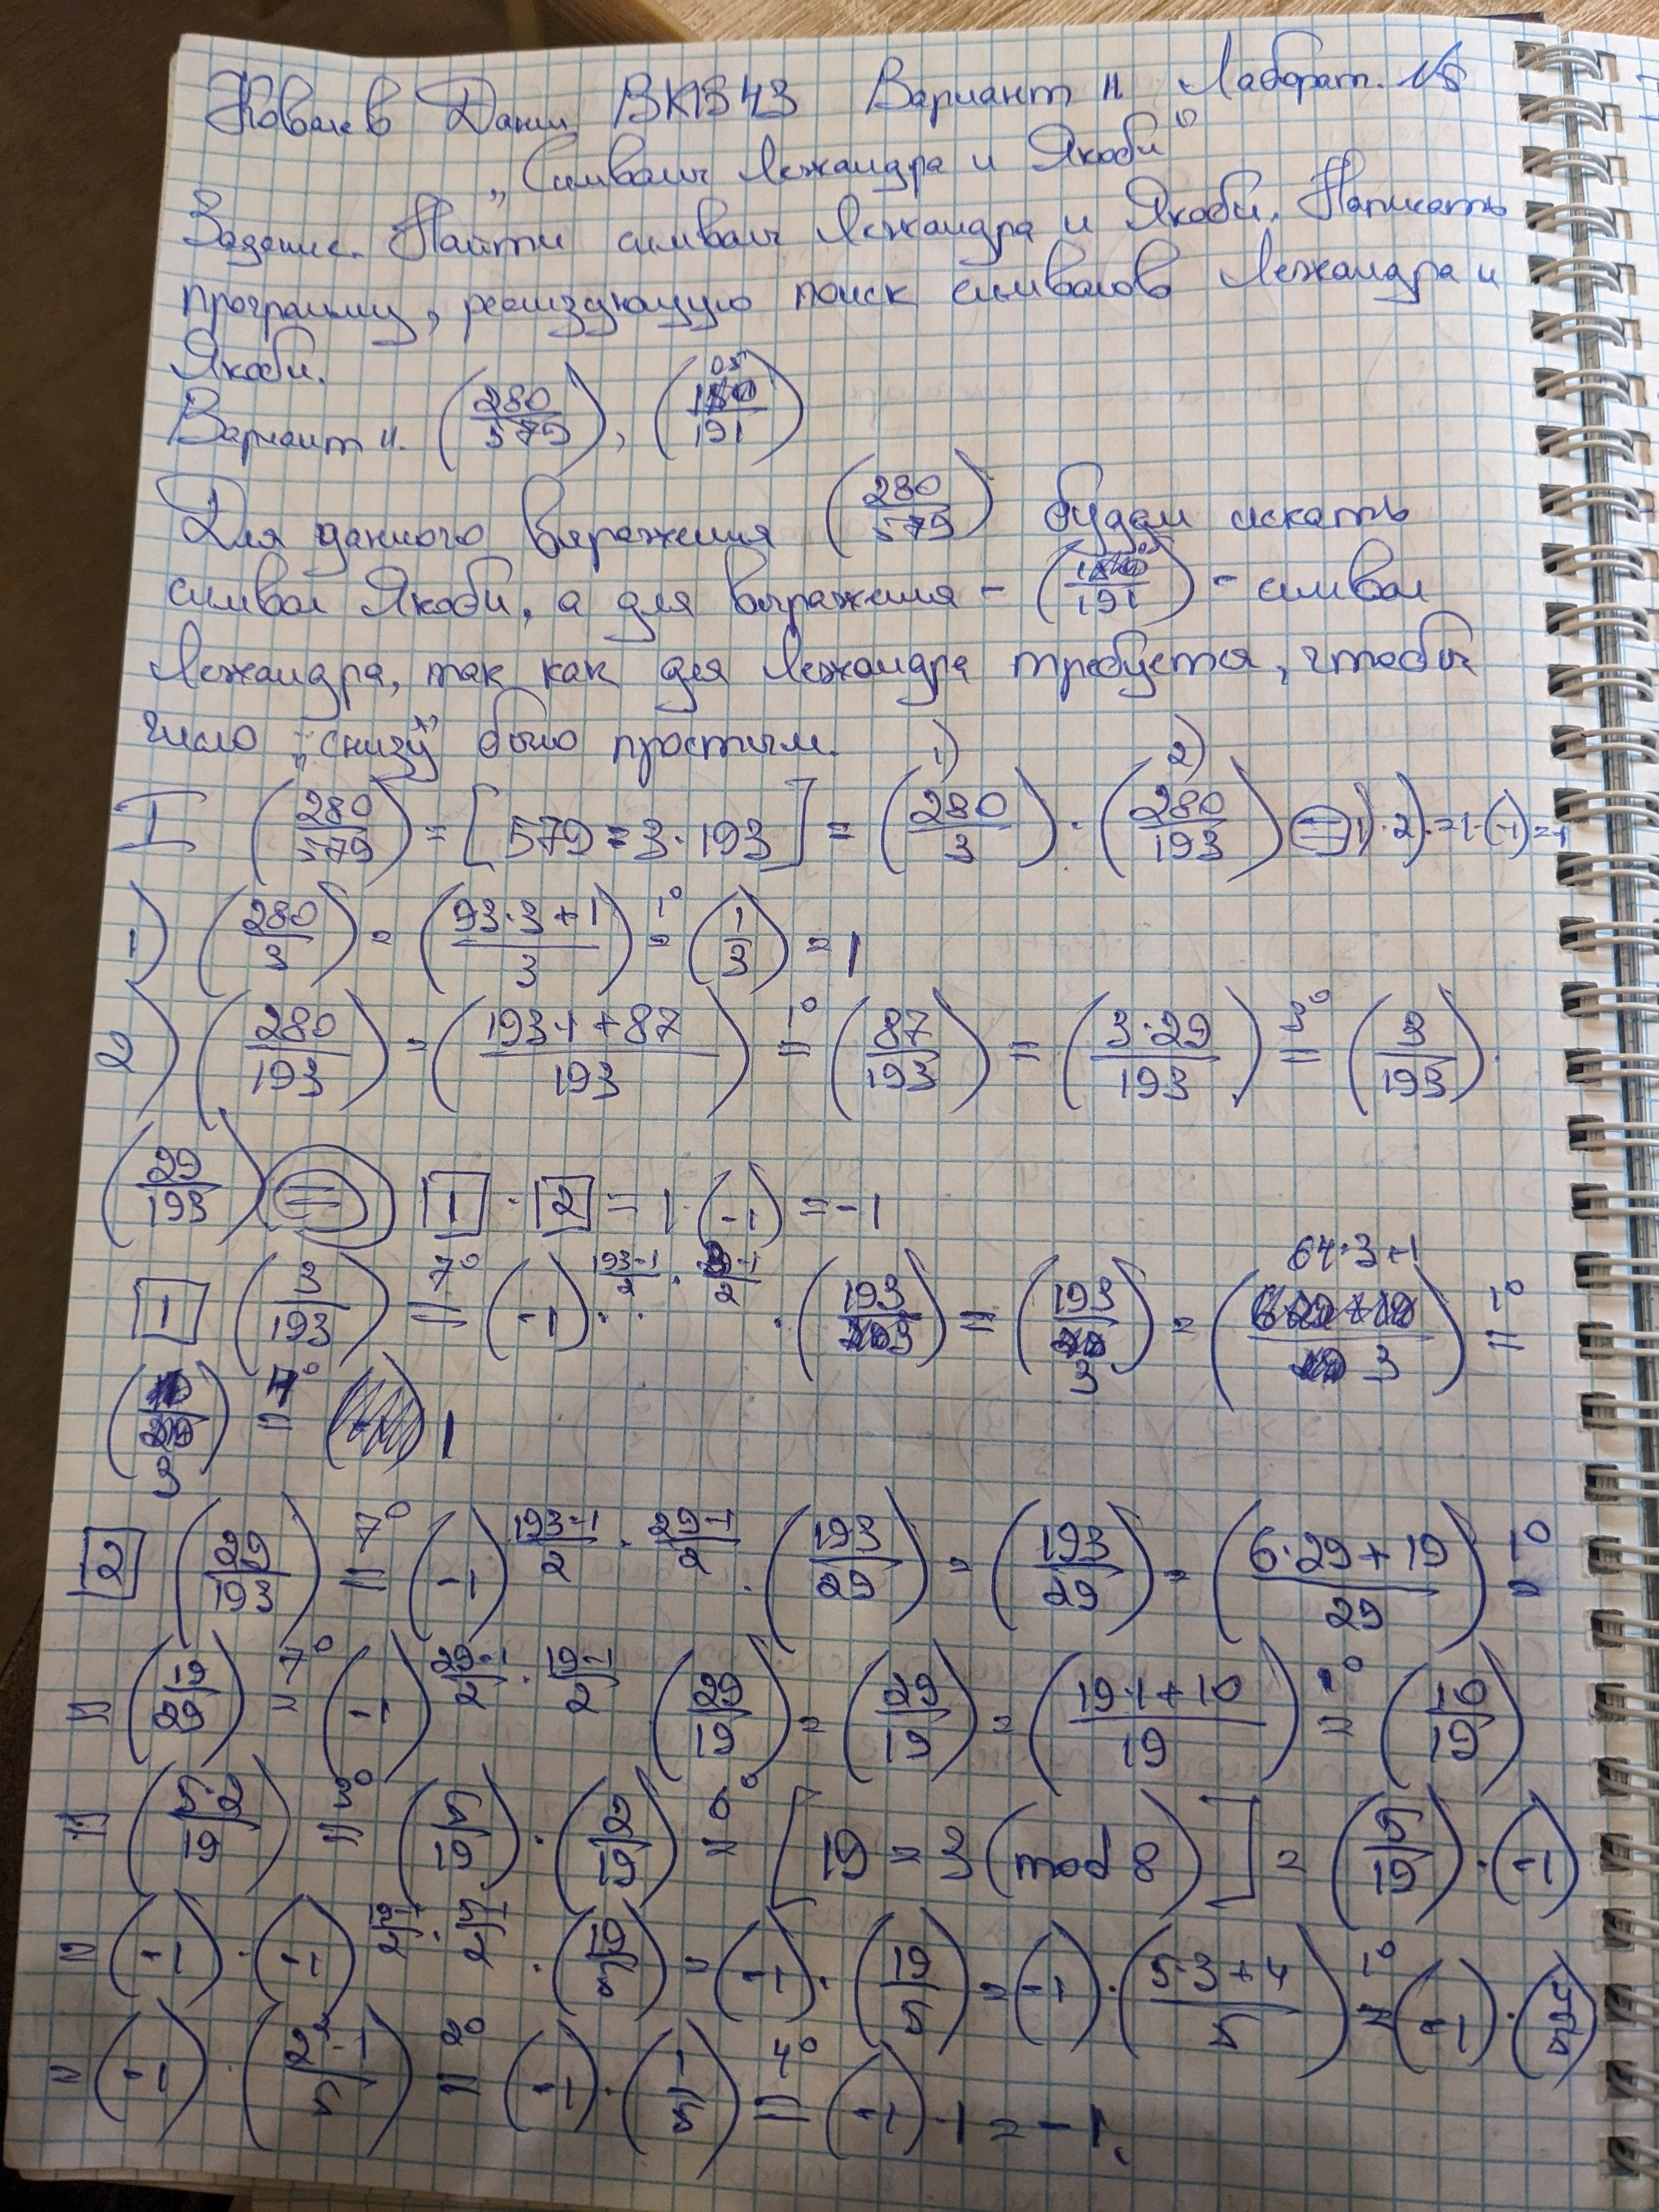 Ковалев Данил ВКБ43 Вариант 11 Лаборат. №5
„Символы Лежандра и Якоби"
Задание. Найти символы Лежандра и Якоби. Написать
программу, реализующую поиск символов Лежандра и
Якоби.
Вариант 11. (280/579), (105/191)
Для данного выражения (280/579) будем искать
символ Якоби, а для выражения - (105/191) - символ
Лежандра, так как для Лежандра требуется, чтобы
число „снизу" было простым.
I (280/579) = [579 = 3·193] = (280/3)·(280/193) = 1)·2) = 1·(-1) = -1
1) (280/3) = (93·3+1/3) =^1° (1/3) = 1
2) (280/193) = (193·1+87/193) =^1° (87/193) = (3·29/193) =^3° (3/193)·
(29/193) = [1]·[2] = 1·(-1) = -1
[1] (3/193) =^7° (-1)^(193-1/2 · 3-1/2) · (193/3) = (193/3) = (64·3+1/3) =^1°
(1/3) =^4° 1
[2] (29/193) =^7° (-1)^(193-1/2 · 29-1/2) · (193/29) = (193/29) = (6·29+19/29) =^1°
= (19/29) =^7° (-1)^(29-1/2 · 19-1/2) (29/19) = (29/19) = (19·1+10/19) =^1° (10/19)
= (5·2/19) =^3° (5/19)·(2/19) =^6° [19 = 3 (mod 8)] = (5/19)·(-1)
= (-1)·(-1)^(19-1/2 · 5-1/2) · (19/5) = (-1)·(19/5) = (-1)·(5·3+4/5) =^1° (-1)·(4/5)
= (-1)·(2²·1/5) =^2° (-1)·(1/5) =^4° (-1)·1 = -1.